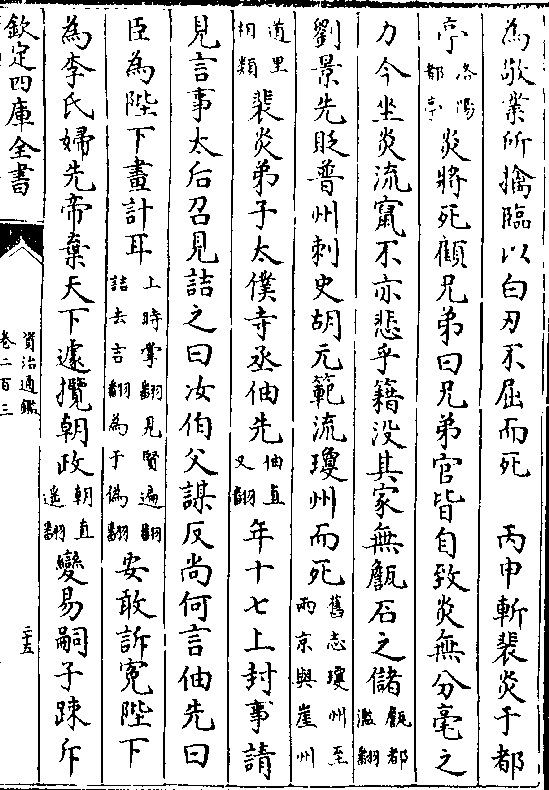 為敬業所擒臨以白刃不屈而死　丙申斬裴炎于都
亭洛陽都亭炎將死顧兄弟曰兄弟官皆自致炎無分毫之
力今坐炎流竄不亦悲乎籍没其家無甔石之儲甔都濫翻
劉景先貶普州刺史胡元範流瓊州而死舊志瓊州至兩京與崖州
道里相類裴炎弟子太僕寺丞伷先伷直又翻年十七上封事請
見言事太后召見詰之曰汝伯父謀反尚何言伷先曰
臣為陛下畫計耳上時掌翻見賢遍翻詰去言翻為于偽翻安敢訴寃陛下
為李氏婦先帝棄天下遽攬朝政朝直遥翻變易嗣子踈斥
欽定四庫全書
資治通鑑
卷二百三
二十五